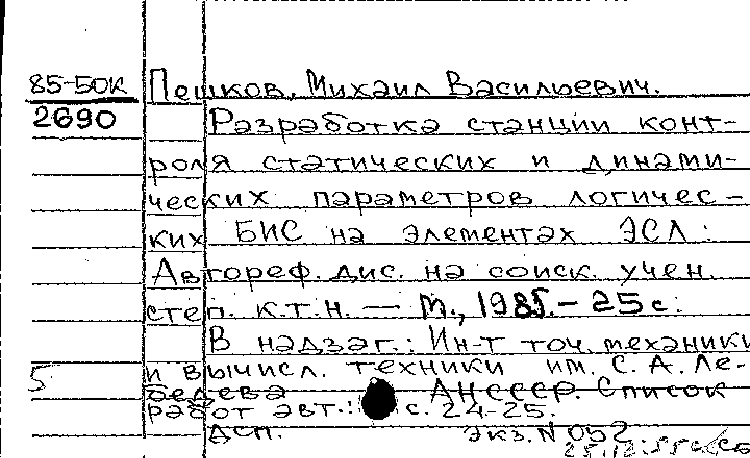 85-50К Пешков, Михаил Васильевич.
2690 Разработка станции конт-
роля статических и динами-
ческих параметров логичес-
ких БИС на элементах ЭСЛ:
Автореф. дис. на соиск. учен.
степ. к.т.н. — М., 1985. - 25 с.
В надзаг.: Ин-т точ. механики
5 и вычисл. техники им. С. А. Ле-
бедева АН СССР. Список
работ авт.: с. 24-25.
Дсп. Экз. N 052